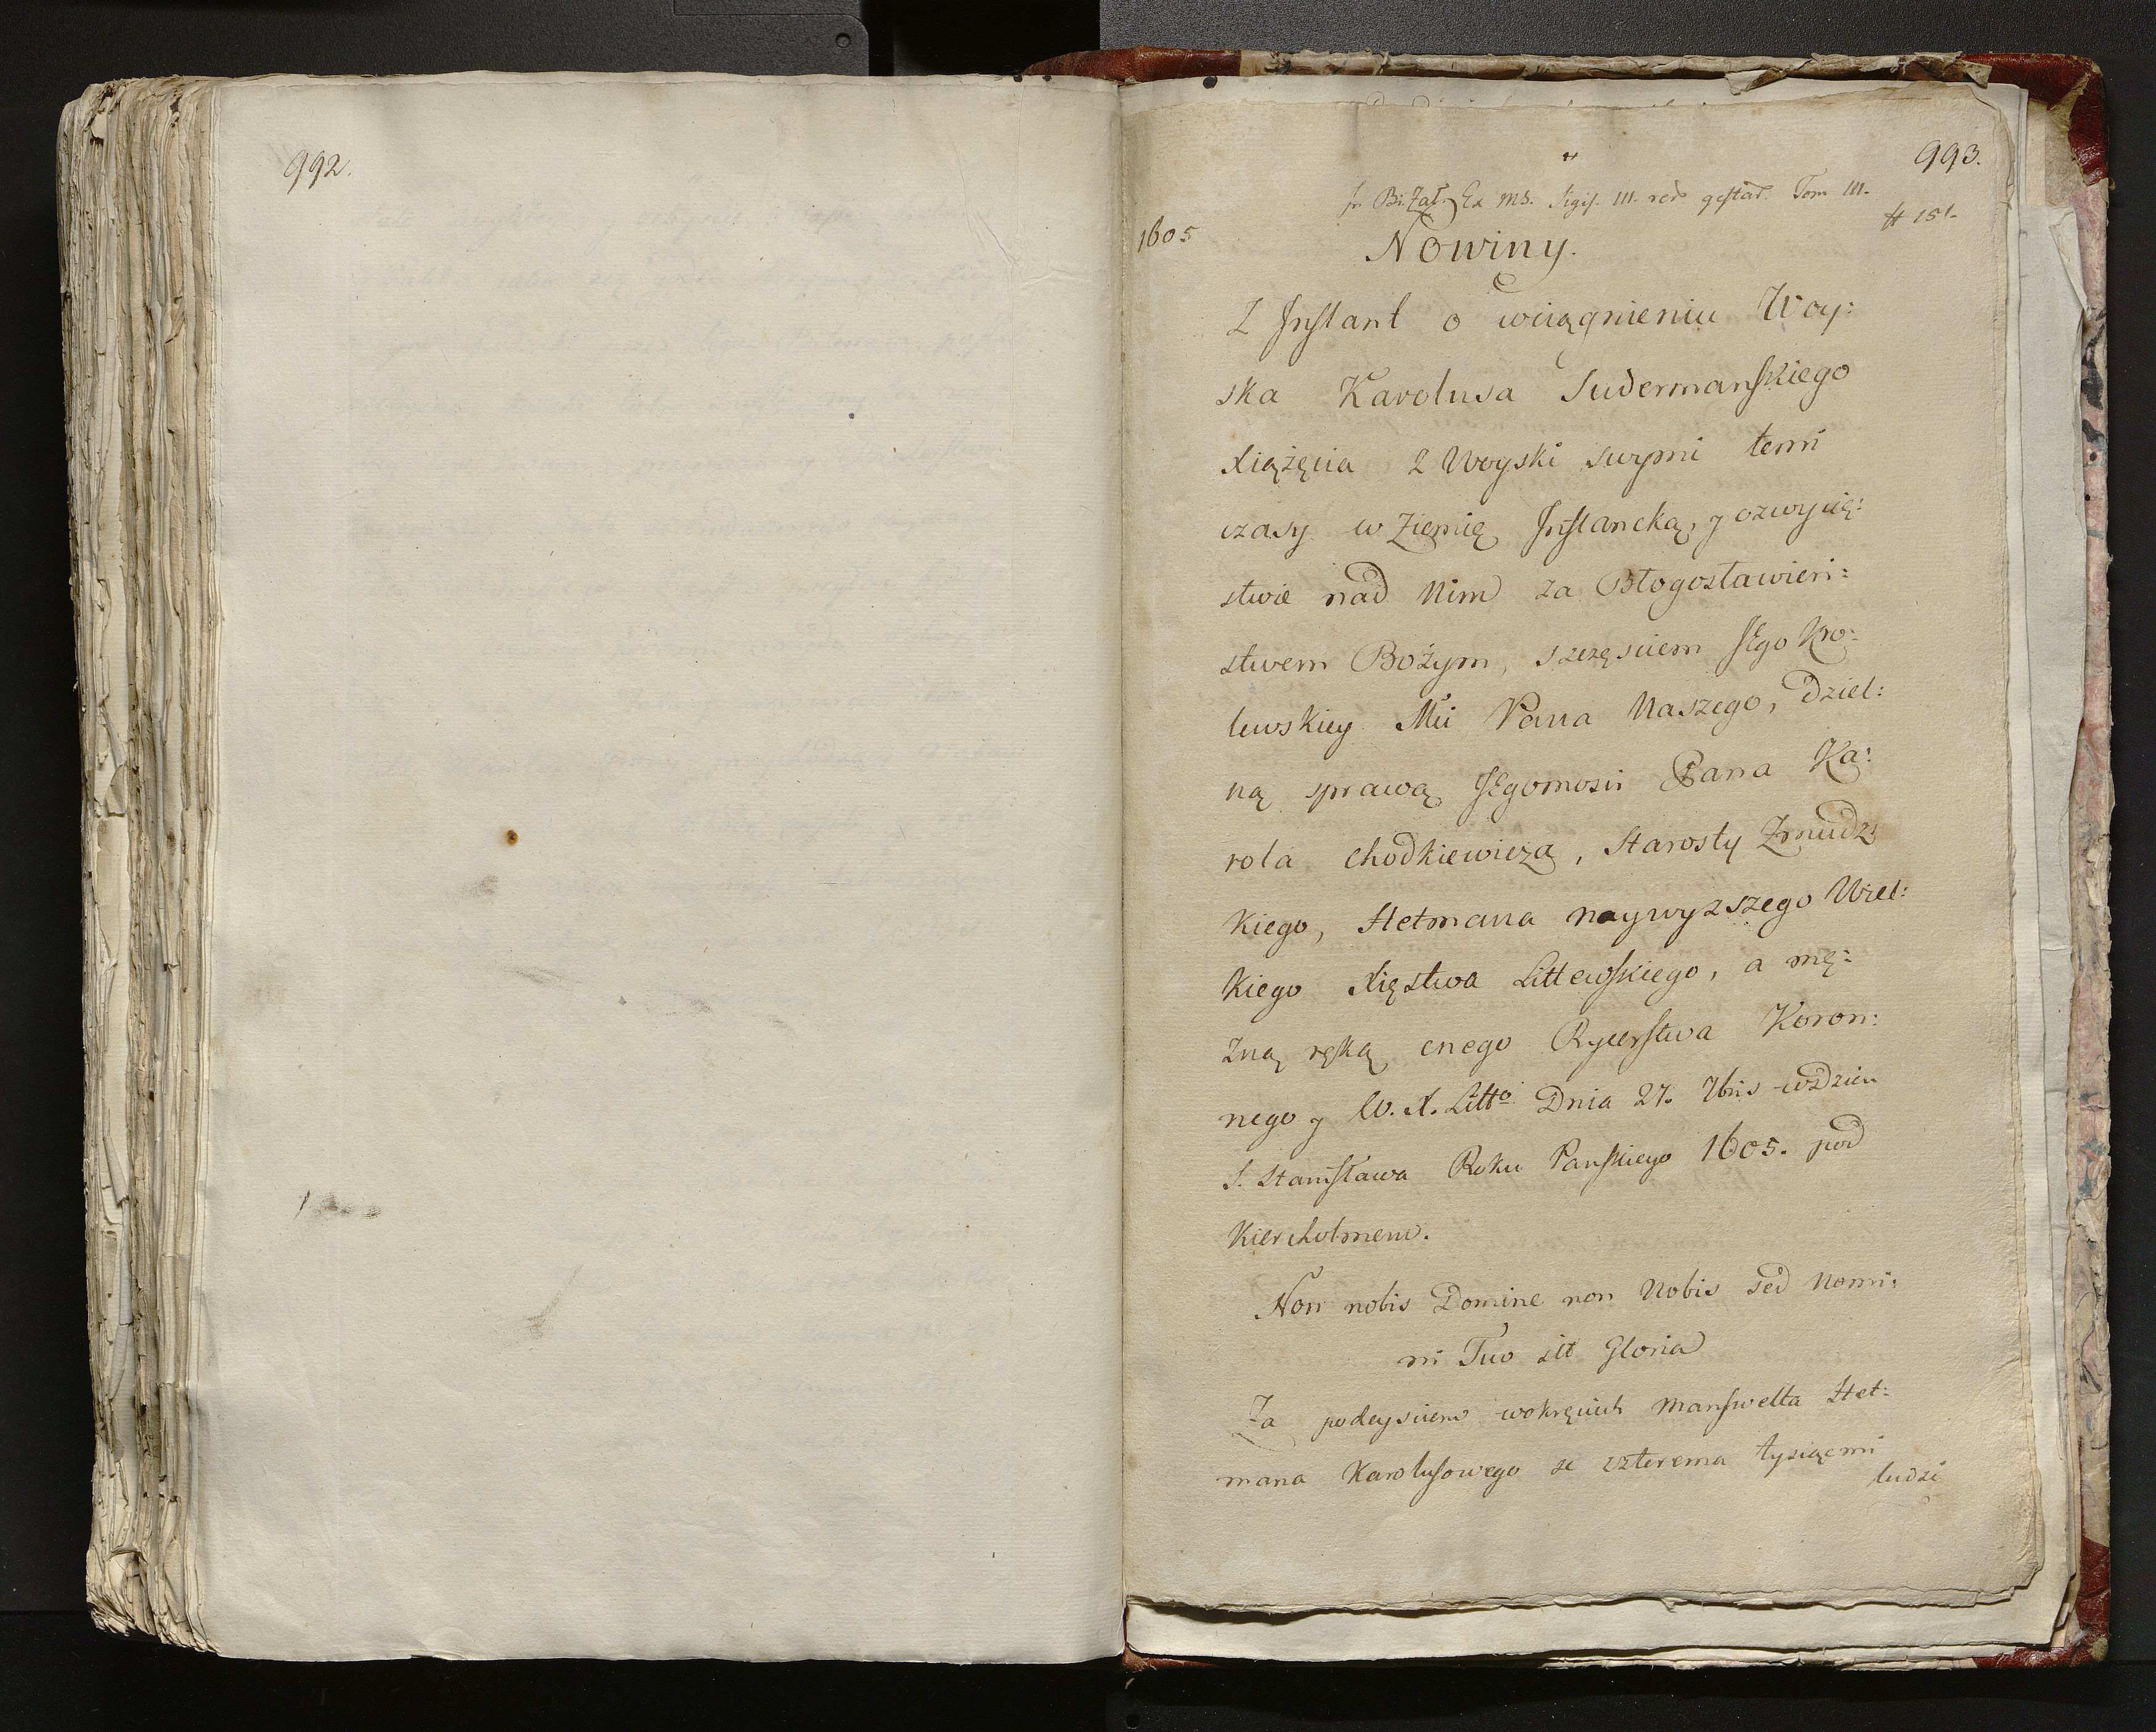 992.
993.
fr. Bi. Zał. Ex MS. Sigis. III. rer. gestar. Tom III.
# 151.
1605
Nowiny.
Z Inflant o wciągnieniu Woy:
ska Karolusa Sudermanskiego
Xiążęcia z Woyski swymi temi
czasy w Ziemię Inflancką, y ozwycię:
stwie nad Nim za Błogosławień:
stwem Bożym, szczęściem JEgo Kro:
lewskiey Mci Pana Naszego, Dziel:
ną sprawą JEgomosci Pana Ka:
rola Chodkiewicza, Starosty Zmudz
kiego, Hetmana naywyzszego Wiel:
kiego Xięstwa Littewskiego, a mę:
zną ręką cnego Rycerstwa Koron:
nego y W. X. Litto Dnia 27. 7bris wdzien
S. Stanisława Roku Panskiego 1605. pod
Kiercholmem.
Non nobis Domine non Nobis sed Nomi:
ni Tuo sit Gloria
Za podeysciem wokręcich Manswelta Het:
mana Karolusowego ze czterema tysiącmi
ludzi